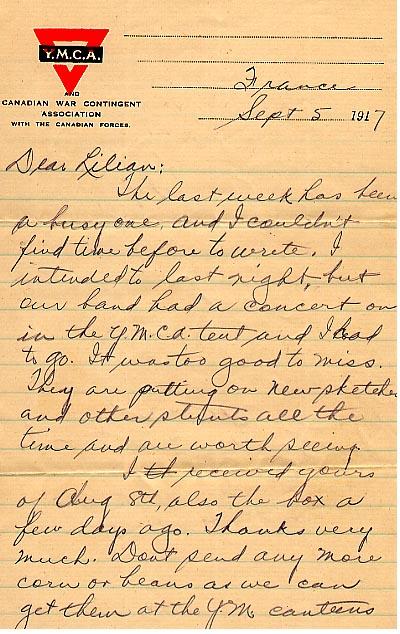 Y.M.C.A.
AND
CANADIAN WAR CONTINGENT
ASSOCIATION
WITH THE CANADIAN FORCES.
France
Sept 5 1917
Dear Lilian:
The last week has been
a busy one, and I couldn't
find time before to write. I
intended to last night, but
our band had a concert on
in the Y.M.C.A. tent and I had
to go. It was too good to miss.
They are putting on new sketches
and other stunts all the
time and are worth seeing.
I received yours
of Aug 8th, also the box a
few days ago. Thanks very
much. Dont send any more
corn or beans as we can
get them at the Y.M. canteens